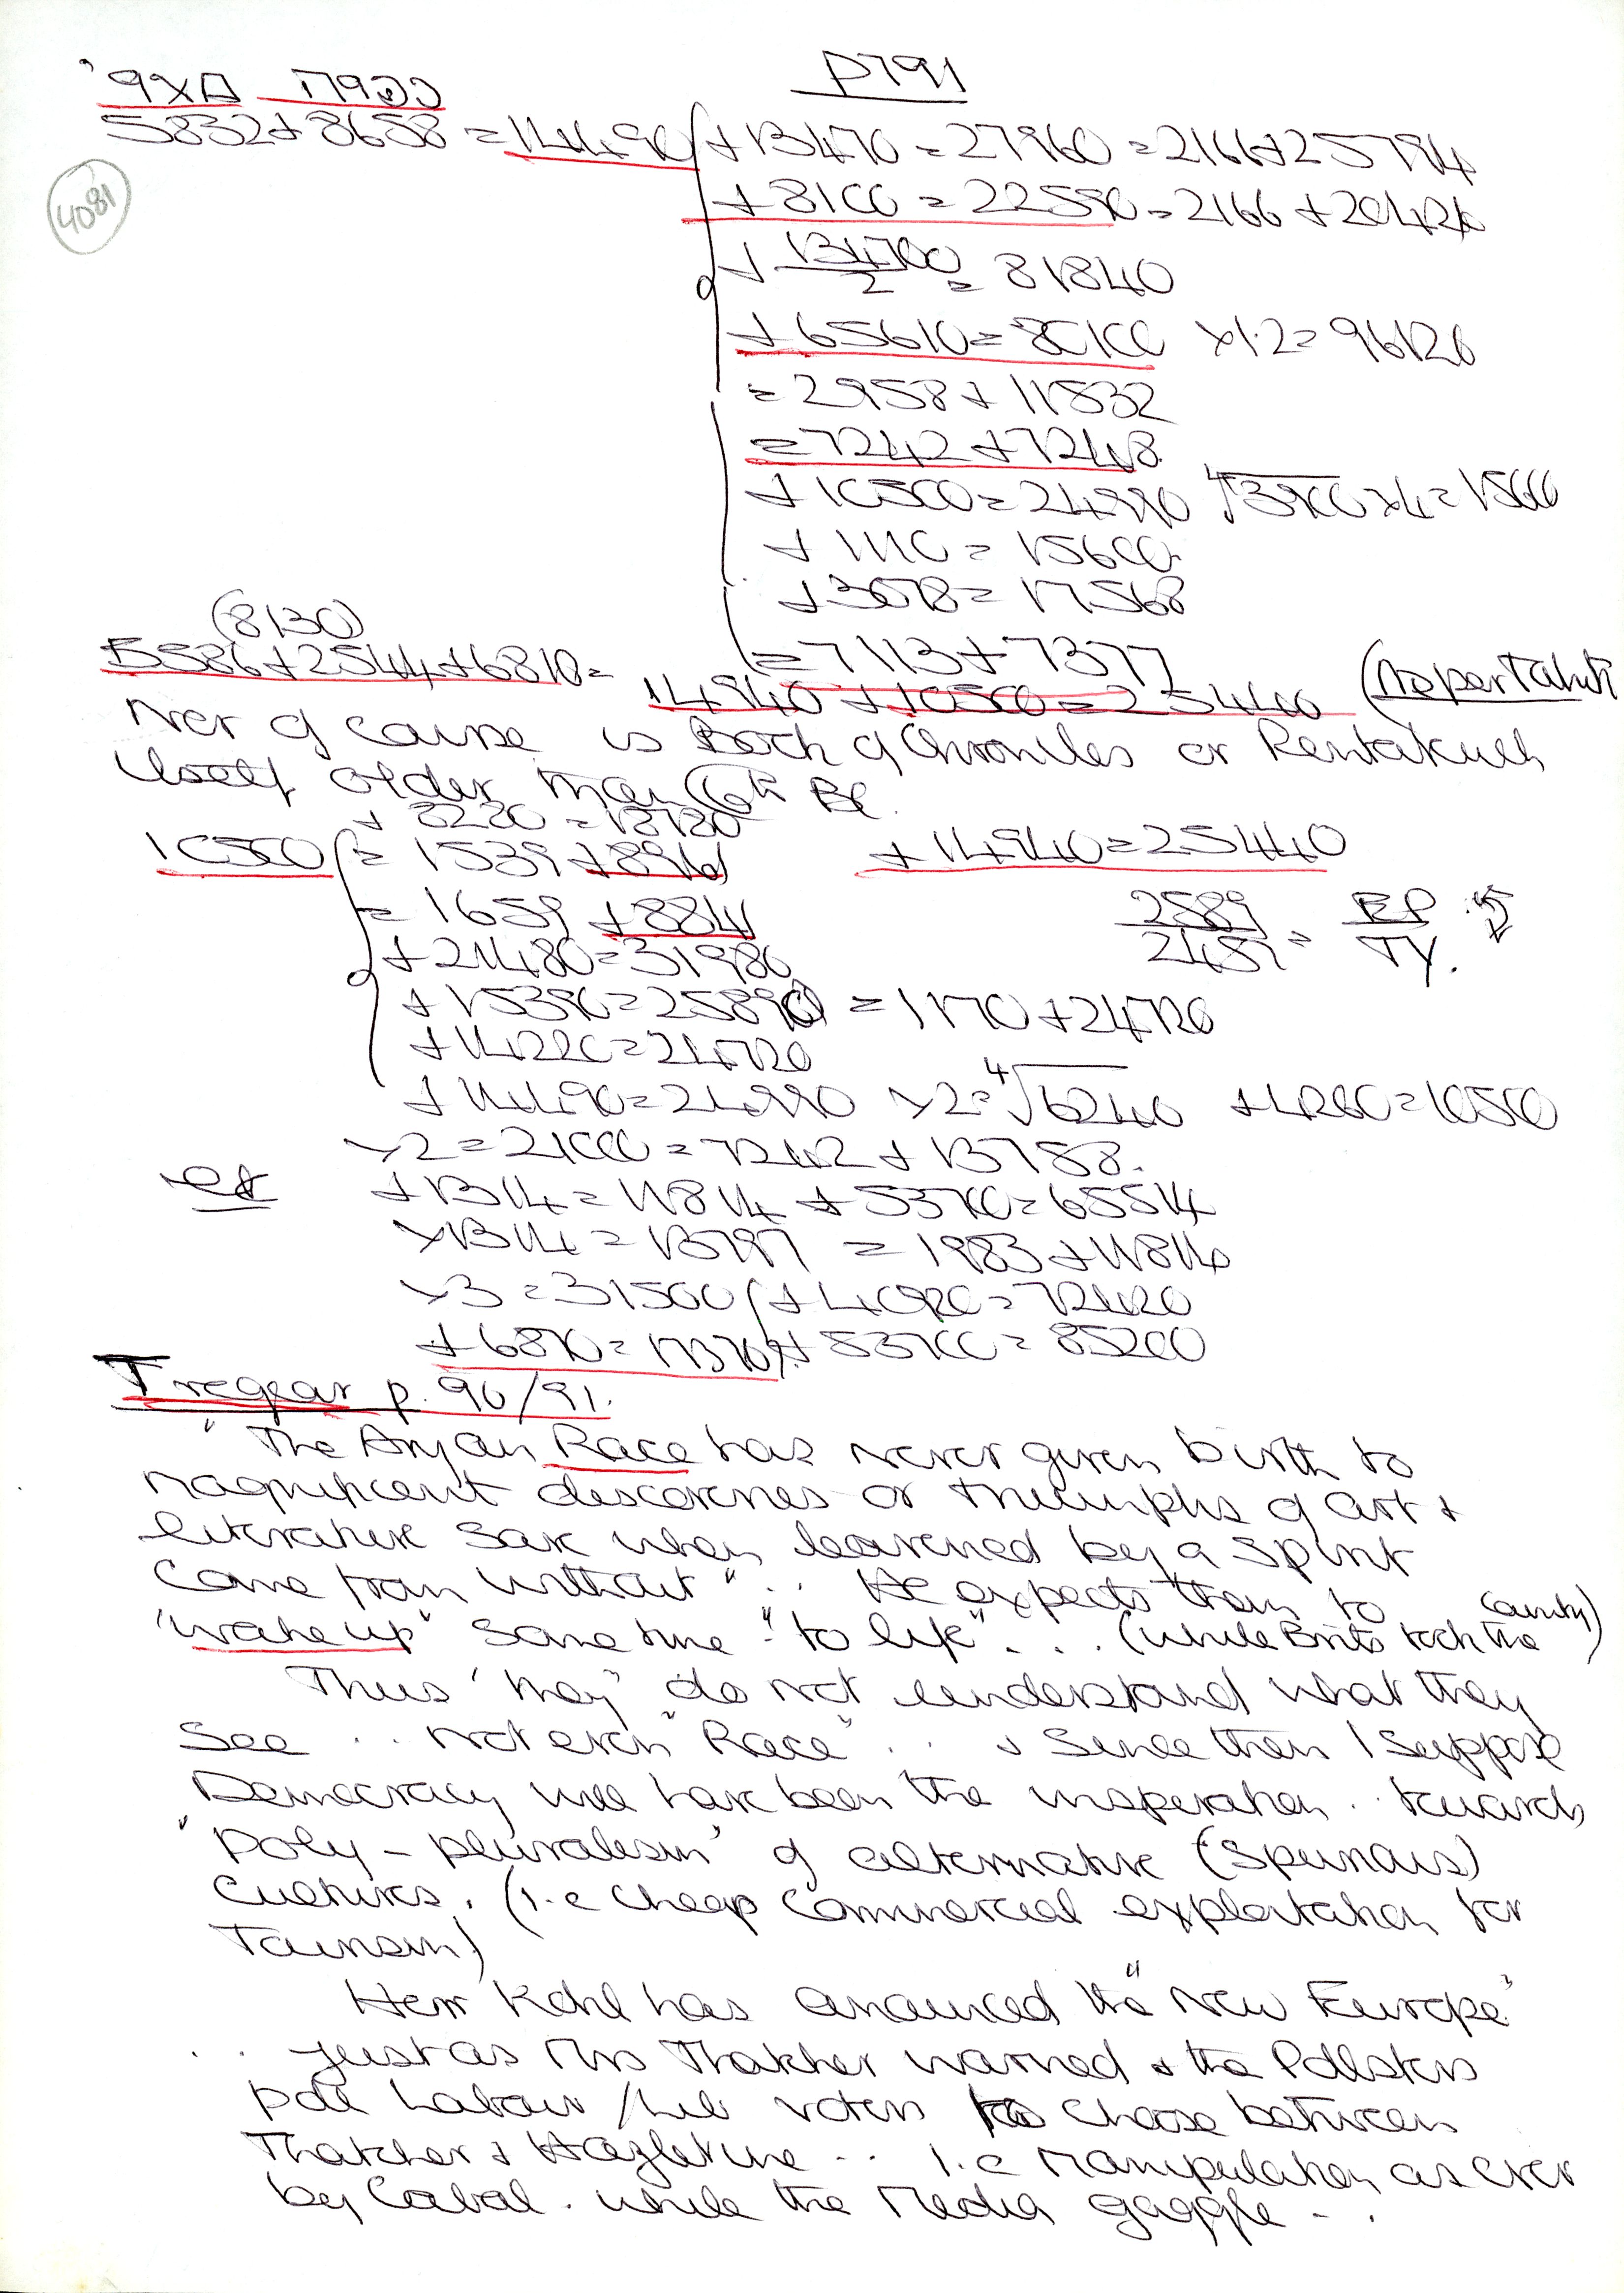 P791
5832 + 8658 = 14490 + 13470 = 27960 = 2166 + 25794
4081
+ 8100 = 22590 = 2166 + 20424
+ 134700 / 2 = 81840
+ 65610 = 80100 × 1.2 = 96120
= 2958 + 11532
= 7242 + 7248
+ 10500 = 24990 ∜3900 × 4 = 15600
+ 1110 = 15600
+ 3078 = 17568
(8130)
= 7113 + 7377
5586 + 2544 + 6810 =
14940 + 10500 = 25440
Nor of course is Book of Chronicles or Pentateuch
itself older than 6th BC.
+ 3220 = 13720
10500 = 1539 + 8961
+ 14940 = 25440
= 1659 + 8841
2589 / 2489 =
+ 21480 = 31980
+ 15390 = 25890 = 1170 + 24720
+ 14220 = 24720
+ 14490 = 24990 × 2 = ∜6240 + 4260 = 10500
× 2 = 21000 = 7242 + 13758.
+ 1314 = 11814 + 53700 = 65514
× 1314 = 13797 = 1983 + 11814
× 3 = 31500 + 40920 = 72420
+ 6870 = 17370 + 83700 = 85200
Tregear p. 90/91.
"The Aryan Race has never given birth to
magnificent discoveries or triumphs of art +
literature save when leavened by a spirit
come from without" .. He expects them to
"wake up" some time "to life" ... (while Brits took the
country)
Thus "they" do not understand what they
see .. not even "Race" .. + since then I suppose
Democracy will have been the inspiration .. towards
"Poly - pluralism" of alternative (spurious)
Cultures. (i.e cheap commercial exploitation for
Tourism)
Herr Kohl has anounced the "New Europe"
.. just as Mrs Thatcher warned + the Pollsters
poll Labour / Lib voters to choose between
Thatcher + Hazletine .. i.e Manipulation as ever
by Cabal . while the Media gaggle - .